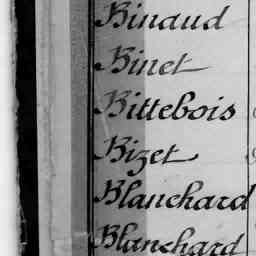 Binaud
Binet
Bittebois
Bizet
Blanchard
Blanchard